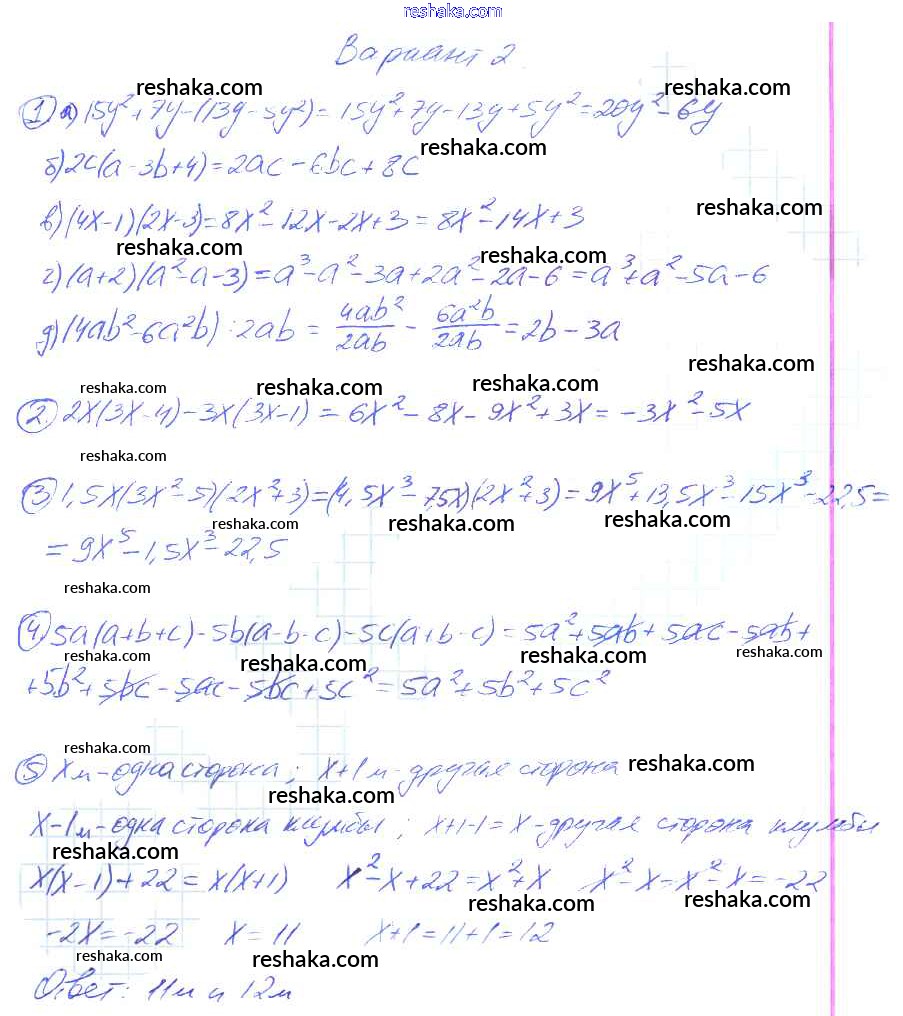 reshaka.com
Вариант 2.
reshaka.com reshaka.com
① а) 15y²+7y-(13y-5y²)= 15y²+7y-13y+5y²=20y²-6y
reshaka.com
б) 2c(a-3b+4)=2ac-6bc+8c
reshaka.com
в) (4x-1)(2x-3)=8x²-12x-2x+3=8x²-14x+3
reshaka.com reshaka.com
г) (a+2)(a²-a-3)=a³-a²-3a+2a²-2a-6=a³+a²-5a-6
д) (4ab²-6a²b):2ab = 4ab²/2ab - 6a²b/2ab = 2b-3a
reshaka.com
reshaka.com reshaka.com reshaka.com
②. 2x(3x-4)-3x(3x-1)=6x²-8x-9x²+3x=-3x²-5x
reshaka.com
③ 1,5x(3x²-5)(2x²+3)=(4,5x³-7,5x)(2x²+3)=9x⁵+13,5x³-15x³-22,5=
reshaka.com reshaka.com reshaka.com
=9x⁵-1,5x³-22,5
reshaka.com
④ 5a(a+b+c)-5b(a-b-c)-5c(a+b-c)=5a²+5ab+5ac-5ab+
reshaka.com reshaka.com reshaka.com reshaka.com
+5b²+5bc-5ac-5bc+5c²=5a²+5b²+5c²
reshaka.com
⑤ x м-одна сторона; x+1 м-другая сторона reshaka.com
reshaka.com
x-1 м-одна сторона клумбы; x+1-1=x-другая сторона клумбы
reshaka.com
x(x-1)+22=x(x+1) x²-x+22=x²+x x²-x-x²-x=-22
reshaka.com reshaka.com
-2x=-22 x=11 x+1=11+1=12
reshaka.com reshaka.com reshaka.com
Ответ: 11м и 12м